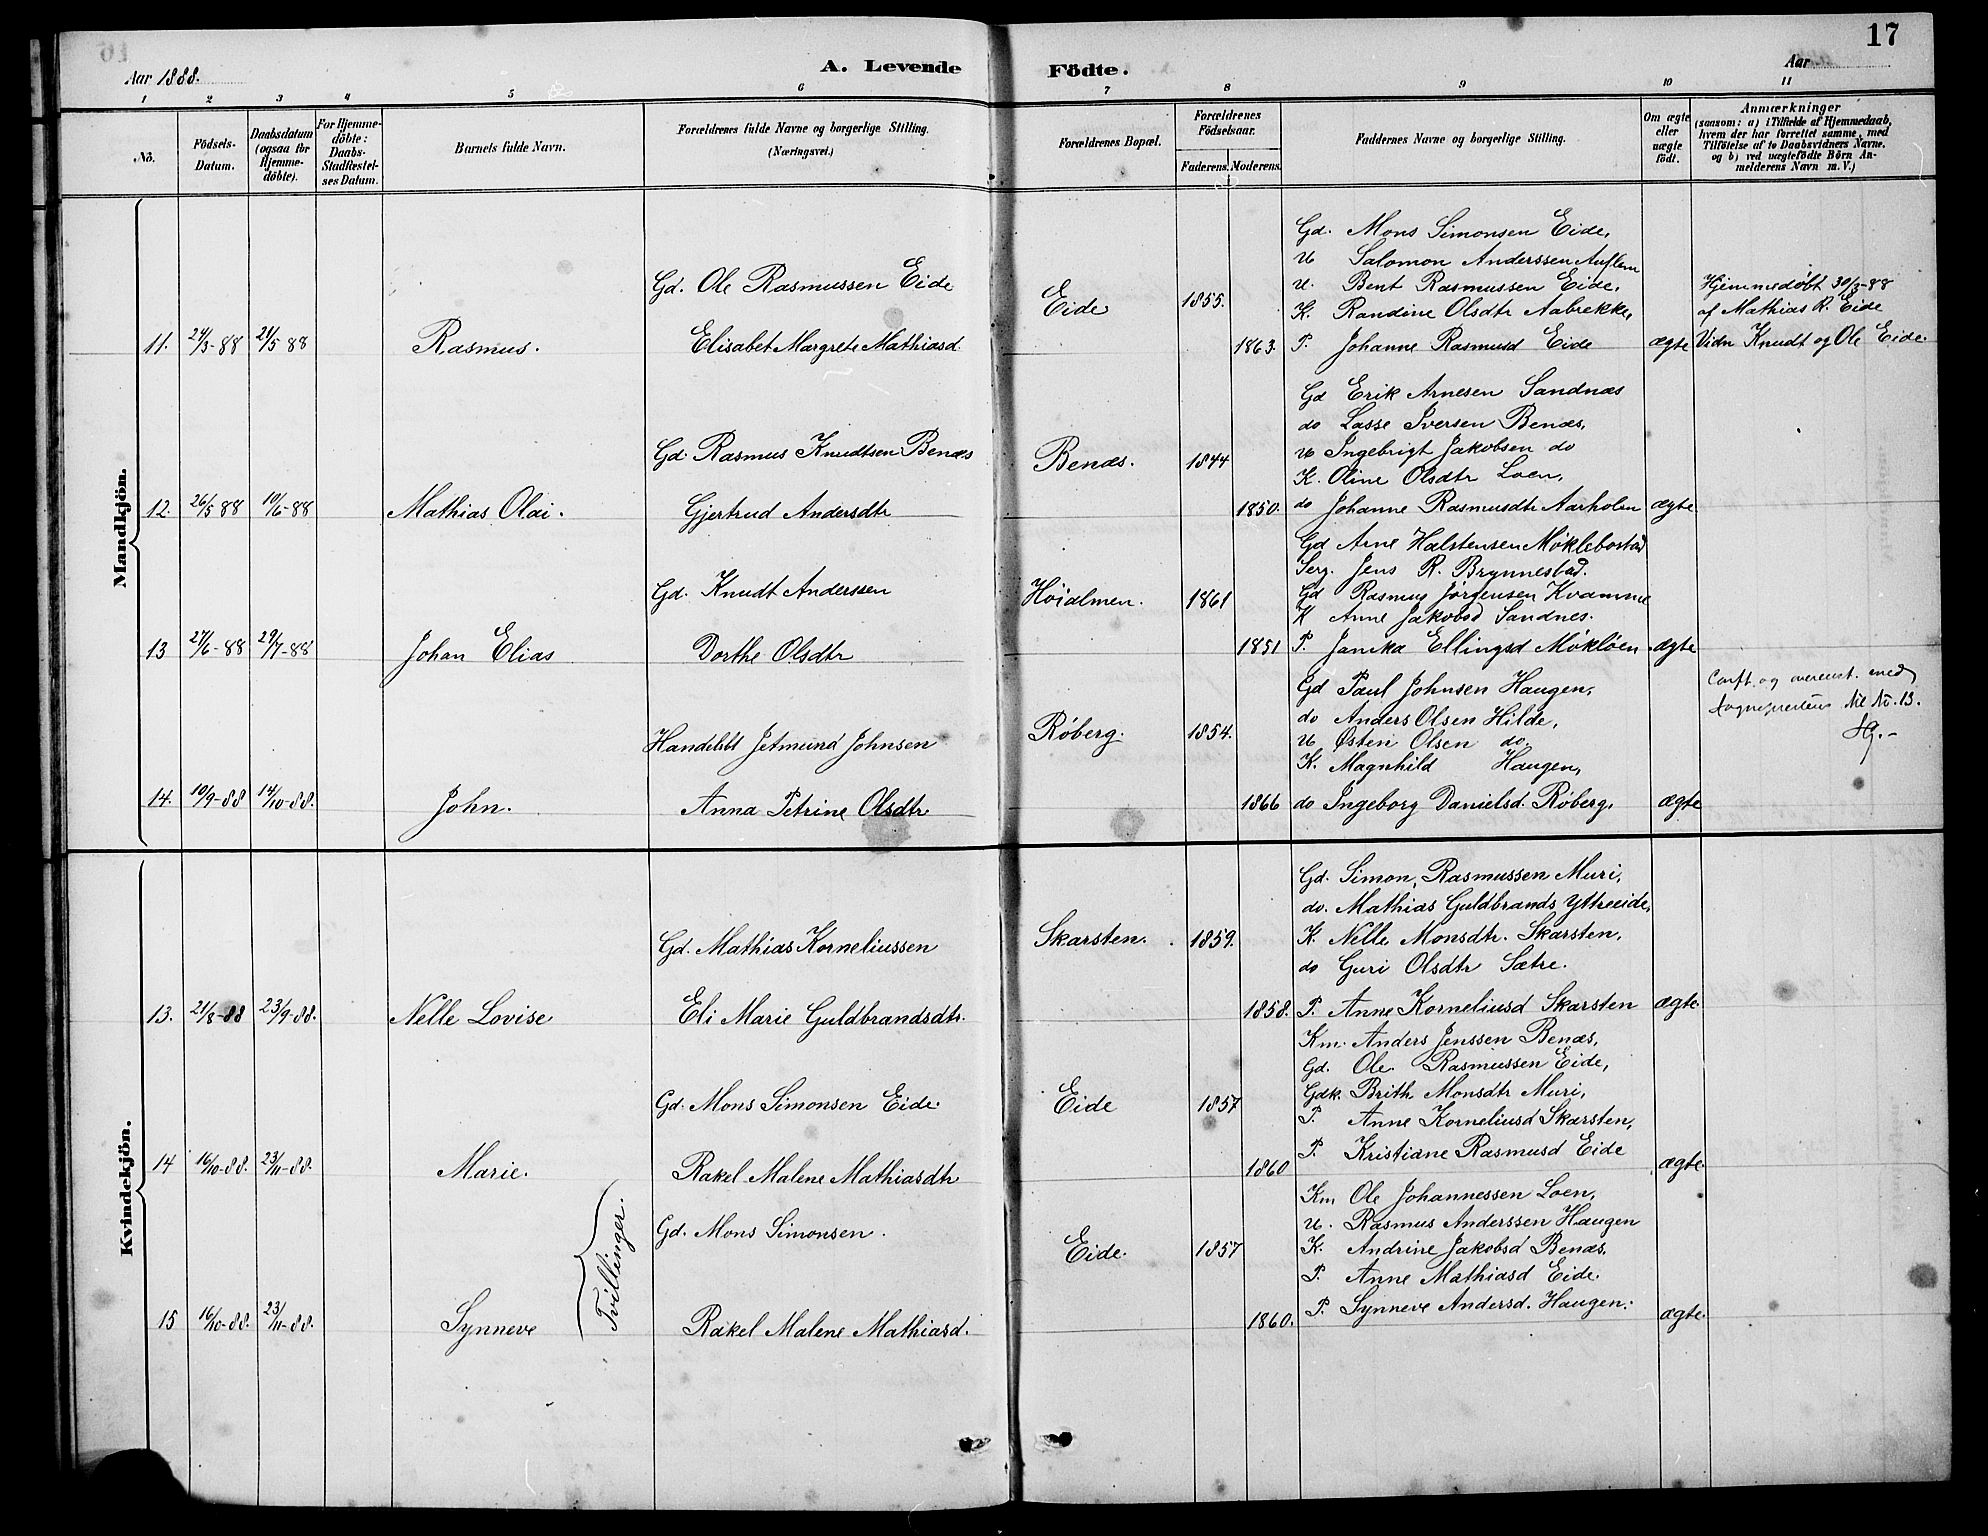 17
Aar 1888.
A. Levende Födte.
Aar
1 2 3 4 5 6 7 8 9 10 11
No.
Födsels-Datum.
Daabsdatum (ogsaa for Hjemme-döbte).
For Hjemme-döbte: Daabs-Stadfæstel-ses Datum.
Barnets fulde Navn.
Forældrenes fulde Navne og borgerlige Stilling. (Næringsvei.)
Forældrenes Bopæl.
Forældrenes Födselsaar.
Faderens. Moderens.
Faddernes Navne og borgerlige Stilling.
Om ægte eller uægte födt.
Anmærkninger (saasom: a) i Tilfælde af Hjemmedaab, hvem der har forrettet samme, med Tilföielse af to Daabsvidners Navne. og b) ved uægtefödte Börn An-melderens Navn m. V.)
Mandkjön.
Gd. Mons Simonsen Eide,
U Salomon Anderssen Auflem
Gd. Ole Rasmussen Eide
Eide
1855.
U. Bent Rasmussen Eide,
Hjemmedøbt 30/3-88
K. Randine Olsdtr Aabrekke,
af Mathias R. Eide
11. 24/3-88 21/5 88 Rasmus. Elisabet Margrete Mathiasd 1863. P. Johanne Rasmusd Eide ægte Vidn Knudt og Ole Eide.
Gd Erik Arnesen Sandnæs
do Lasse Iversen Benæs,
Gd. Rasmus Knudtsen Benæs Benæs. 1844 U Ingebrigt Jakobsen do
K. Oline Olsdtr Loen,
12. 26/5 88 10/6-88 Mathias Olai. Gjertrud Andersdtr 1850. do Johanne Rasmusdtr Aarholen ægte
Gd Arne Halstensen Møklebostad
Serg. Jens R. Brynnestad.
Gd. Knudt Anderssen Høialmen. 1861 Gd Rasmus Jørgensen Kvamme
K Anne Jakobsd Sandnes.
13 27/6-88 29/7-88 Johan Elias Dorthe Olsdtr 1851 P. Janika Ellingsd Mokløen ægte
Gd Paul Johnsen Haugen,
Conf. og overenst. med
do Anders Olsen Hilde,
til No. 13.
Jetmund Johnsen Røberg. 1854. U Østen Olsen do.
K. Magnhild Haugen,
14. 10/9-88 14/10-88. John. Anna Petrine Olsdtr 1866 do Ingeborg Danielsd. Røberg. ægte
Kvindekjön.
Gd. Simon Rasmussen Muri,
do. Mathias Guldbrands Yttreeide,
Gd. Mathias Korneliussen Skarsten. 1859. K. Nelle Monsdtr. Skarsten,
do Guri Olsdtr Sætre.
13. 21/8-88 23/9-88. Nelle Lovise Eli Marie Guldbrandsdtr. 1858. P. Anne Korneliusd Skarsten ægte.
Km. Anders Jenssen Benæs,
Gd. Ole Rasmussen Eide,
Gd. Mons Simonsen Eide. Eide 1857 Gdk. Brith Monsdtr Muri,
P. Anne Korneliusd Skarsten,
14 16/10-88. 23/11-88. Marie. Rakel Malene Mathiasdtr 1860 P. Kristiane Rasmusd Eide ægte.
Tvillinger.
Km Ole Johannessen Loen,
U. Rasmus Anderssen Haugen
Gd. Mons Simonsen. Eide. 1857 K. Andrine Jakobsd Benæs.
P. Anne Mathiasd Eide.
15 16/10-88. 23/11-88. Synneve Rakel Malene Mathiasd. 1860. P. Synneve Andersd. Haugen. ægte.